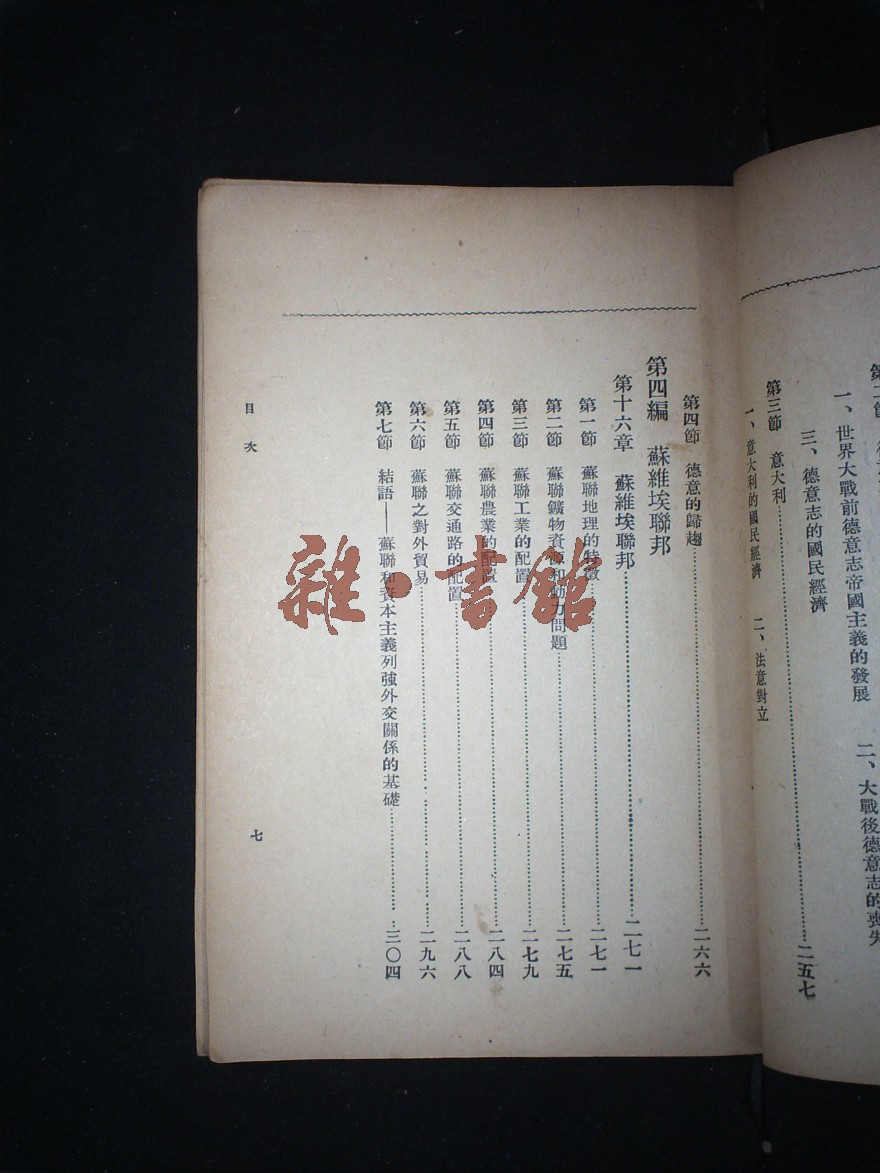 一、世界大戰前德意志帝國主義的發展　二、大戰後德意志的喪失
三、德意志的國民經濟
第三節　意大利……二五七
一、意大利的國民經濟　二、法意對立
第四節　德意的歸趨……二六六
第四編　蘇維埃聯邦
第十六章　蘇維埃聯邦……二七一
第一節　蘇聯地理的特徵……二七一
第二節　蘇聯鑛物資源和動力問題……二七五
第三節　蘇聯工業的配置……二七九
第四節　蘇聯農業的配置……二八四
第五節　蘇聯交通路的配置……二八八
第六節　蘇聯之對外貿易……二九六
第七節　結語——蘇聯和資本主義列強外交關係的基礎……三〇四
目次
七
雜·書館